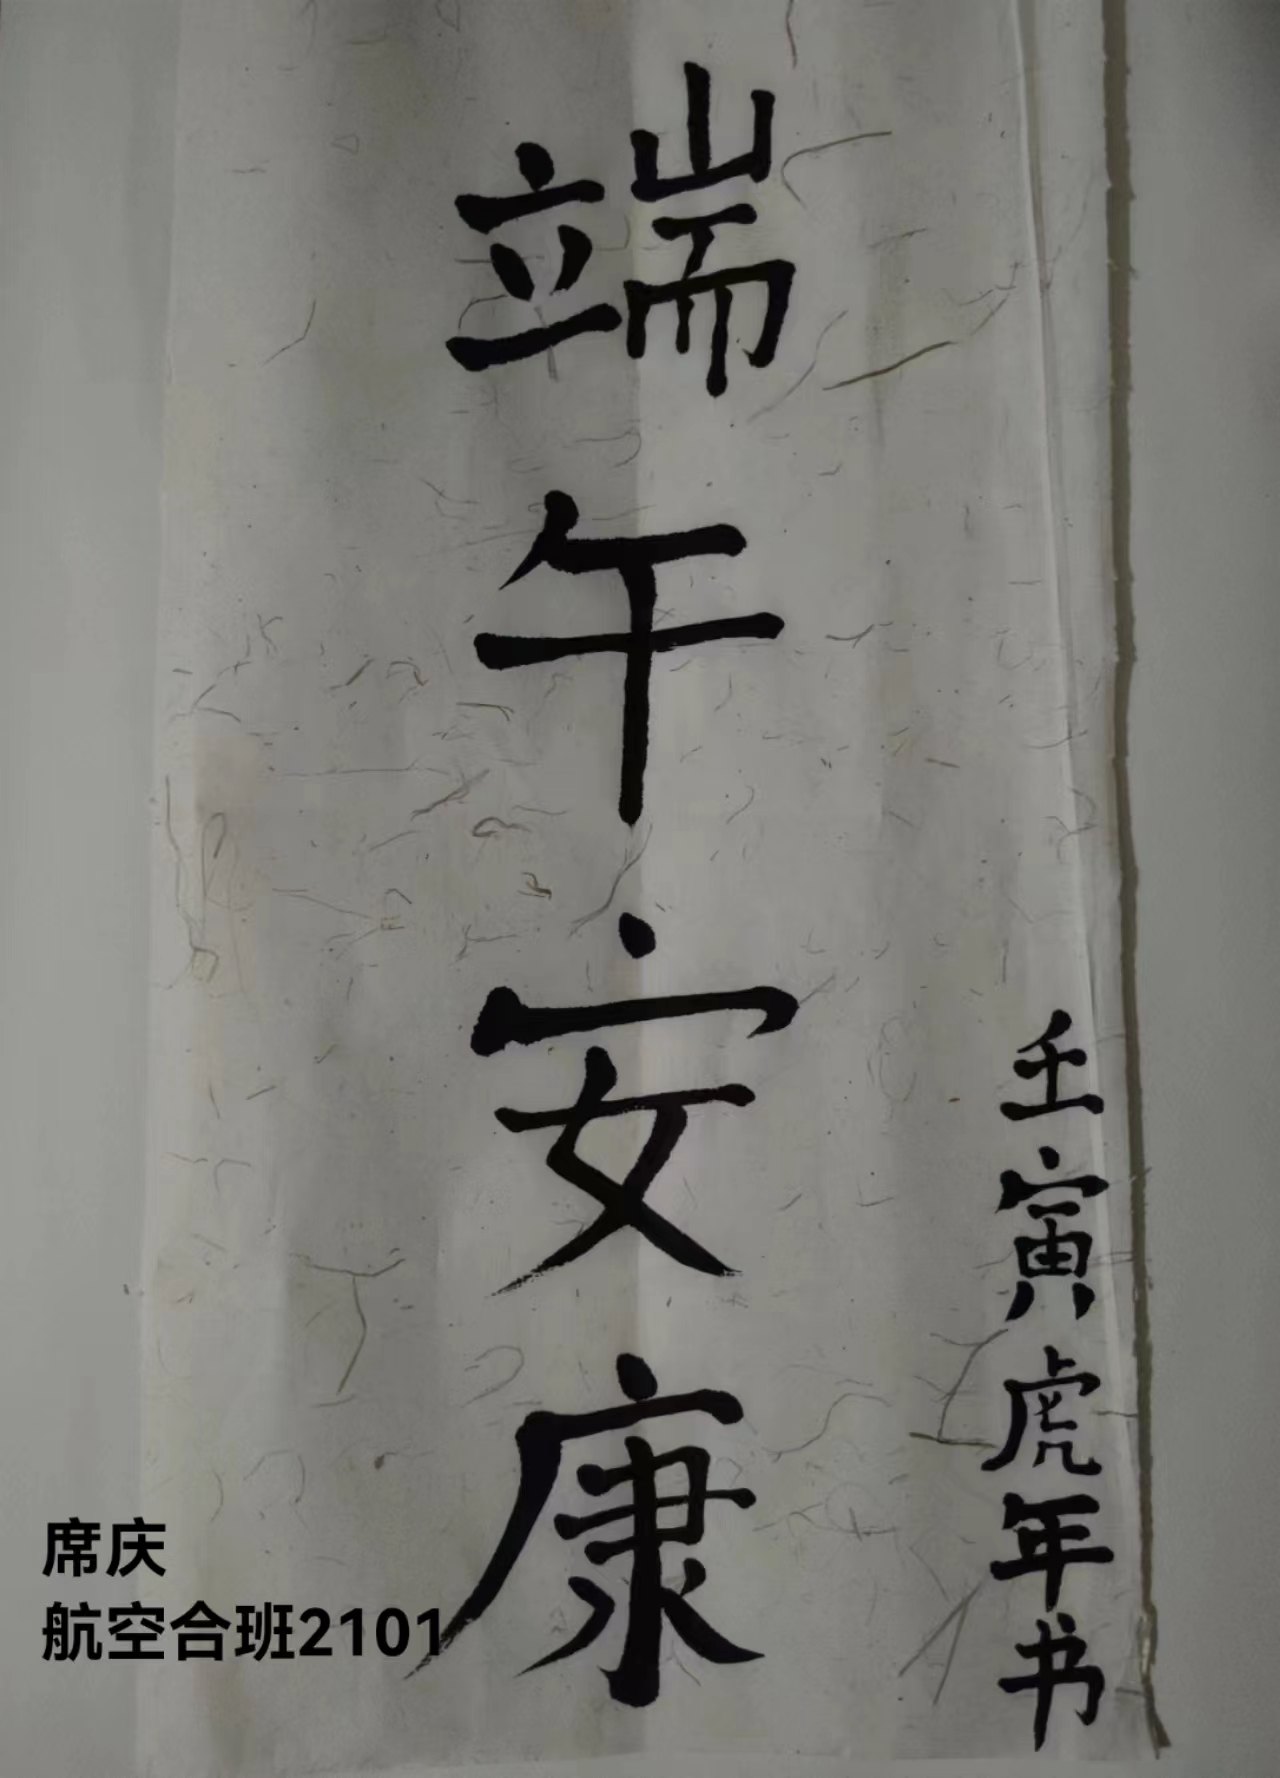 端午安康
壬寅虎年书
席庆
航空合班2101